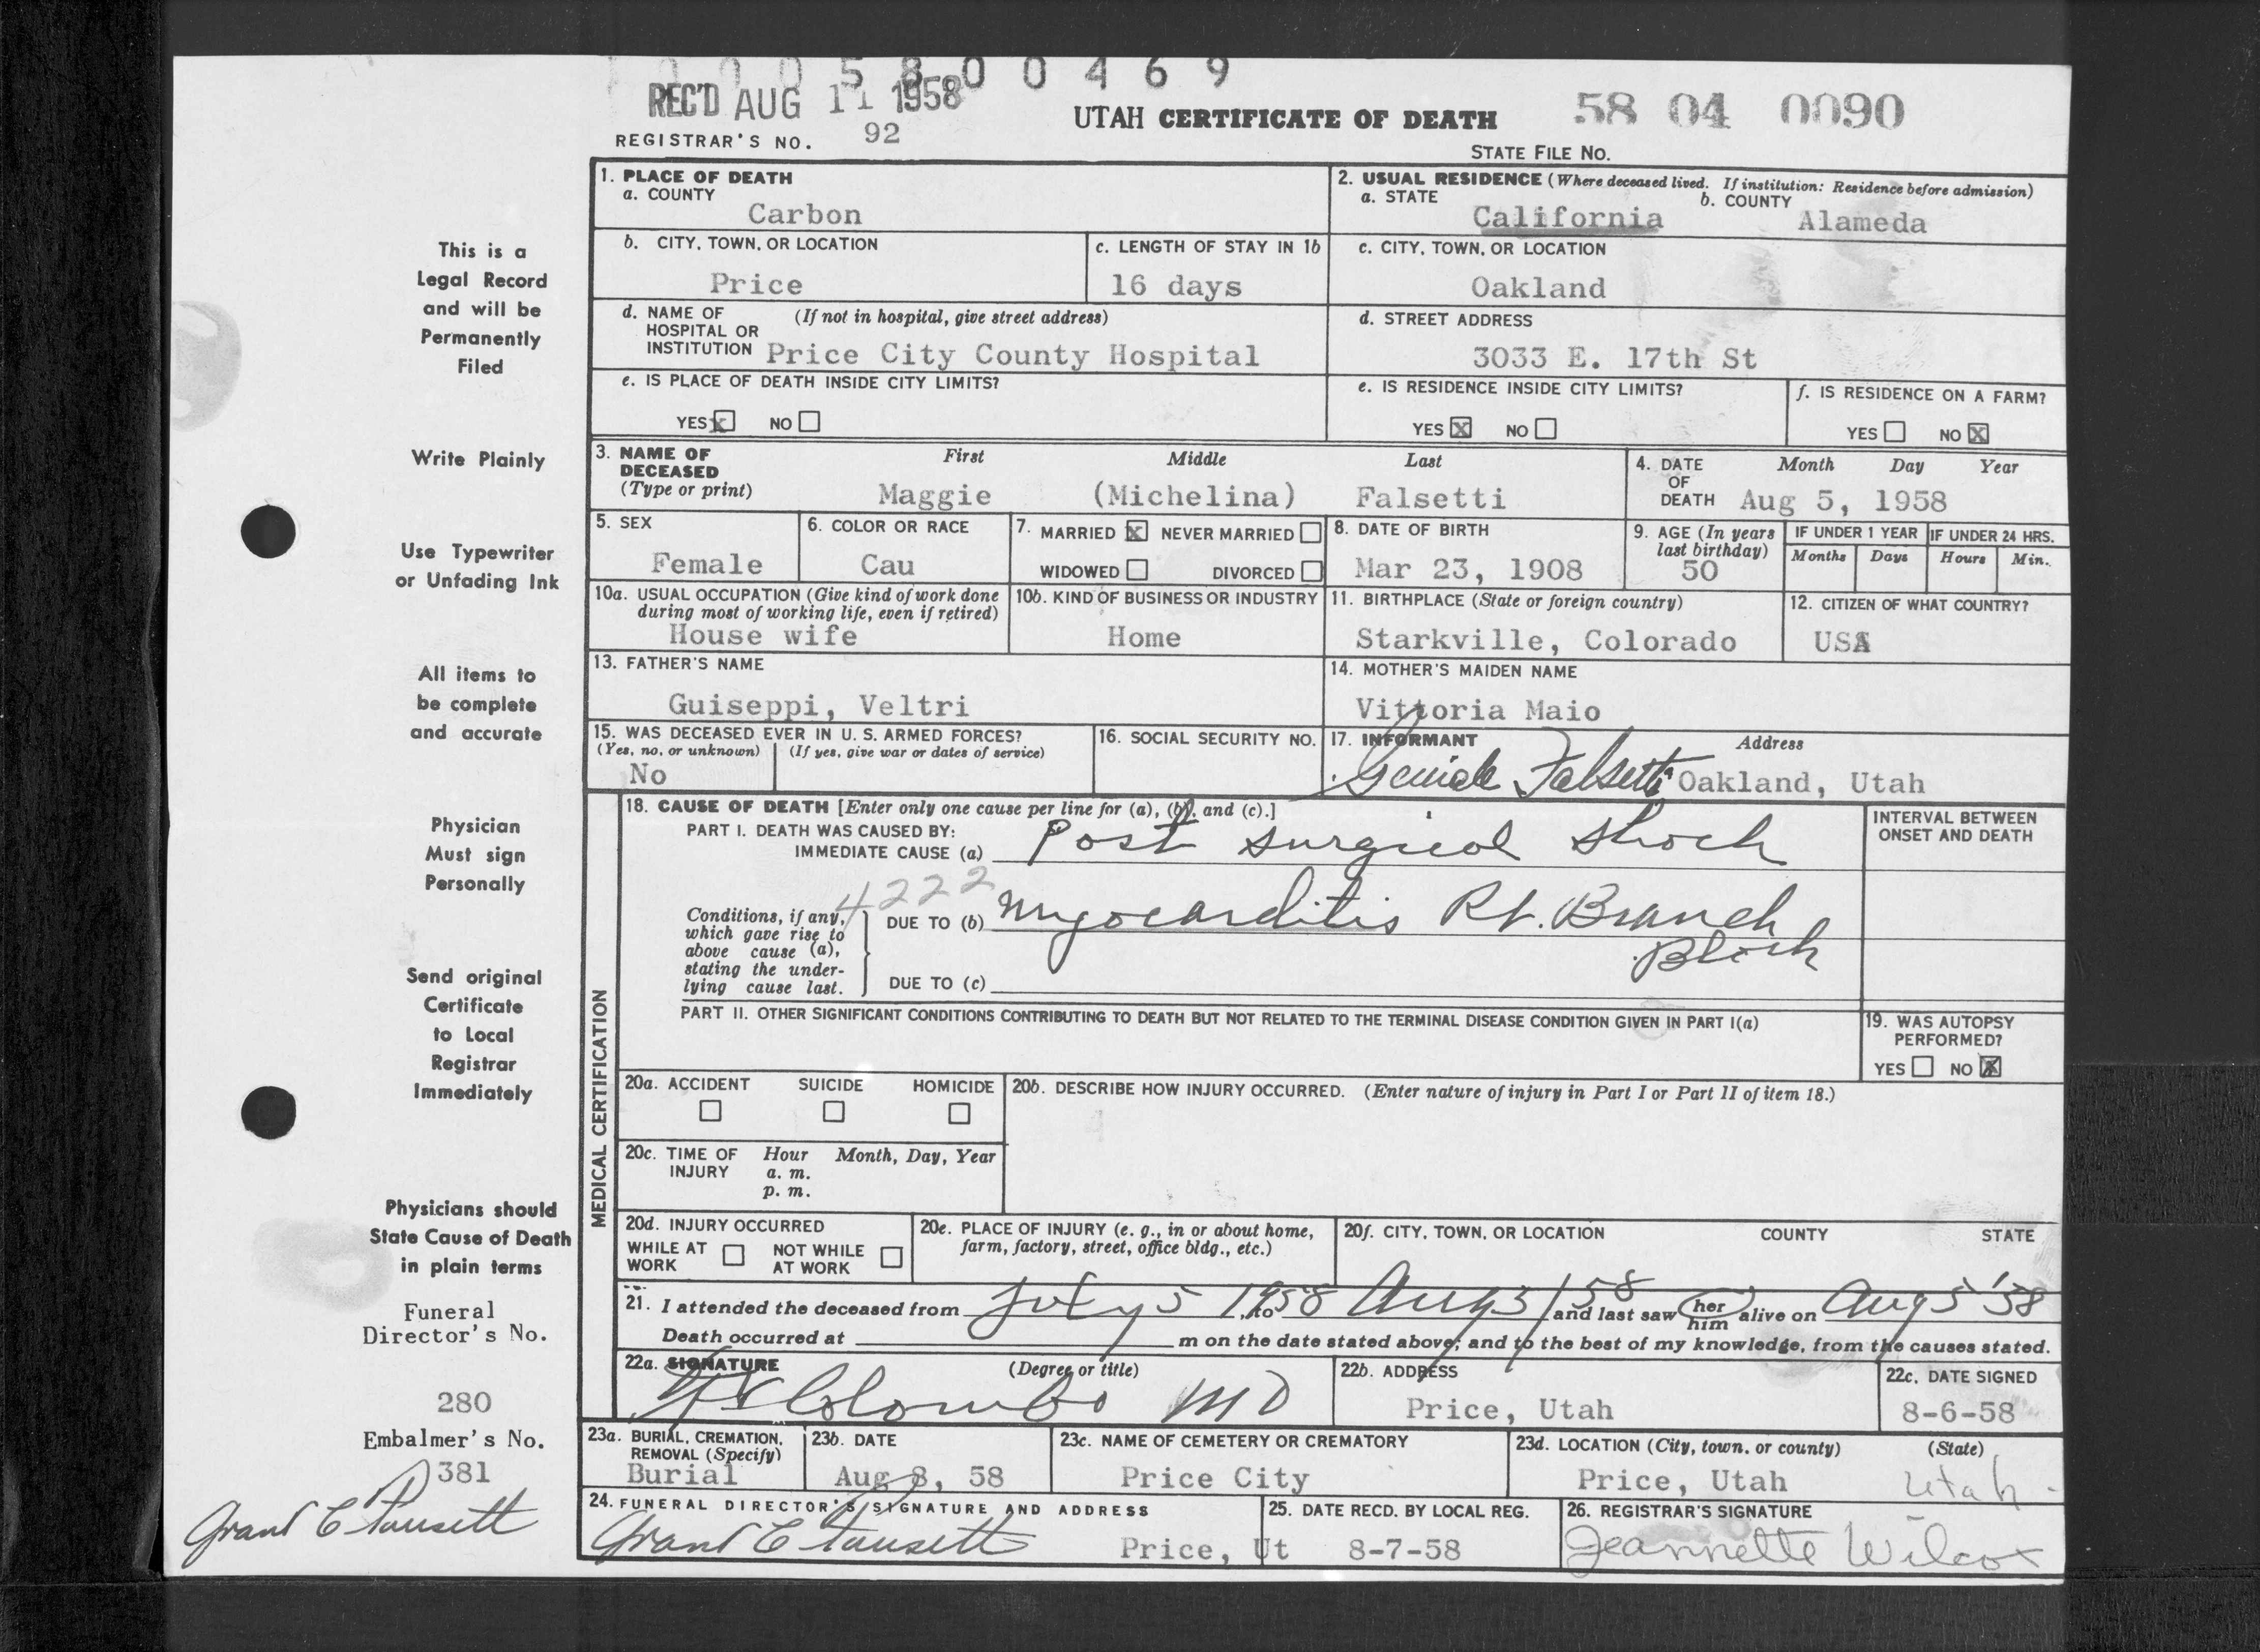 0 0 0 5 8 0 0 4 6 9
REC'D AUG 11 1958
UTAH CERTIFICATE OF DEATH
58 04 0090
REGISTRAR'S NO. 92
STATE FILE No.
1. PLACE OF DEATH
a. COUNTY
Carbon
2. USUAL RESIDENCE (Where deceased lived. If institution: Residence before admission)
a. STATE California b. COUNTY Alameda
b. CITY, TOWN, OR LOCATION
Price
c. LENGTH OF STAY IN 1b
16 days
c. CITY, TOWN, OR LOCATION
Oakland
d. NAME OF HOSPITAL OR INSTITUTION (If not in hospital, give street address)
Price City County Hospital
d. STREET ADDRESS
3033 E. 17th St
e. IS PLACE OF DEATH INSIDE CITY LIMITS?
YES x NO
e. IS RESIDENCE INSIDE CITY LIMITS?
YES X NO
f. IS RESIDENCE ON A FARM?
YES NO X
3. NAME OF DECEASED (Type or print)
First Middle Last
Maggie (Michelina) Falsetti
4. DATE OF DEATH
Month Day Year
Aug 5, 1958
5. SEX
Female
6. COLOR OR RACE
Cau
7. MARRIED X NEVER MARRIED
WIDOWED DIVORCED
8. DATE OF BIRTH
Mar 23, 1908
9. AGE (In years last birthday)
50
IF UNDER 1 YEAR
Months Days
IF UNDER 24 HRS.
Hours Min.
10a. USUAL OCCUPATION (Give kind of work done during most of working life, even if retired)
House wife
10b. KIND OF BUSINESS OR INDUSTRY
Home
11. BIRTHPLACE (State or foreign country)
Starkville, Colorado
12. CITIZEN OF WHAT COUNTRY?
USA
13. FATHER'S NAME
Guiseppi, Veltri
14. MOTHER'S MAIDEN NAME
Vittoria Maio
15. WAS DECEASED EVER IN U. S. ARMED FORCES?
(Yes, no, or unknown) (If yes, give war or dates of service)
No
16. SOCIAL SECURITY NO.
17. INFORMANT Address
Falsetti Oakland, Utah
MEDICAL CERTIFICATION
18. CAUSE OF DEATH [Enter only one cause per line for (a), (b), and (c).]
PART I. DEATH WAS CAUSED BY:
IMMEDIATE CAUSE (a) Post surgical shock
INTERVAL BETWEEN ONSET AND DEATH
4222
Conditions, if any, which gave rise to above cause (a), stating the underlying cause last.
DUE TO (b) Myocarditis Rt. Branch
Block
DUE TO (c)
PART II. OTHER SIGNIFICANT CONDITIONS CONTRIBUTING TO DEATH BUT NOT RELATED TO THE TERMINAL DISEASE CONDITION GIVEN IN PART I(a)
19. WAS AUTOPSY PERFORMED?
YES NO X
20a. ACCIDENT SUICIDE HOMICIDE
20b. DESCRIBE HOW INJURY OCCURRED. (Enter nature of injury in Part I or Part II of item 18.)
20c. TIME OF INJURY Hour Month, Day, Year
a. m.
p. m.
20d. INJURY OCCURRED
WHILE AT WORK NOT WHILE AT WORK
20e. PLACE OF INJURY (e. g., in or about home, farm, factory, street, office bldg., etc.)
20f. CITY, TOWN, OR LOCATION COUNTY STATE
21. I attended the deceased from July 5 1958, to Aug 5/58 and last saw her him alive on Aug 5 '58
Death occurred at m on the date stated above; and to the best of my knowledge, from the causes stated.
22a. SIGNATURE (Degree or title)
Colombo MD
22b. ADDRESS
Price, Utah
22c. DATE SIGNED
8-6-58
23a. BURIAL, CREMATION, REMOVAL (Specify)
Burial
23b. DATE
Aug 8, 58
23c. NAME OF CEMETERY OR CREMATORY
Price City
23d. LOCATION (City, town, or county) (State)
Price, Utah Utah
24. FUNERAL DIRECTOR'S SIGNATURE AND ADDRESS
Grant C Fausett Price, Ut
25. DATE RECD. BY LOCAL REG.
8-7-58
26. REGISTRAR'S SIGNATURE
Jeannette Wilcox
This is a
Legal Record
and will be
Permanently
Filed
Write Plainly
Use Typewriter
or Unfading Ink
All items to
be complete
and accurate
Physician
Must sign
Personally
Send original
Certificate
to Local
Registrar
Immediately
Physicians should
State Cause of Death
in plain terms
Funeral
Director's No.
280
Embalmer's No.
381
Grant C Fausett